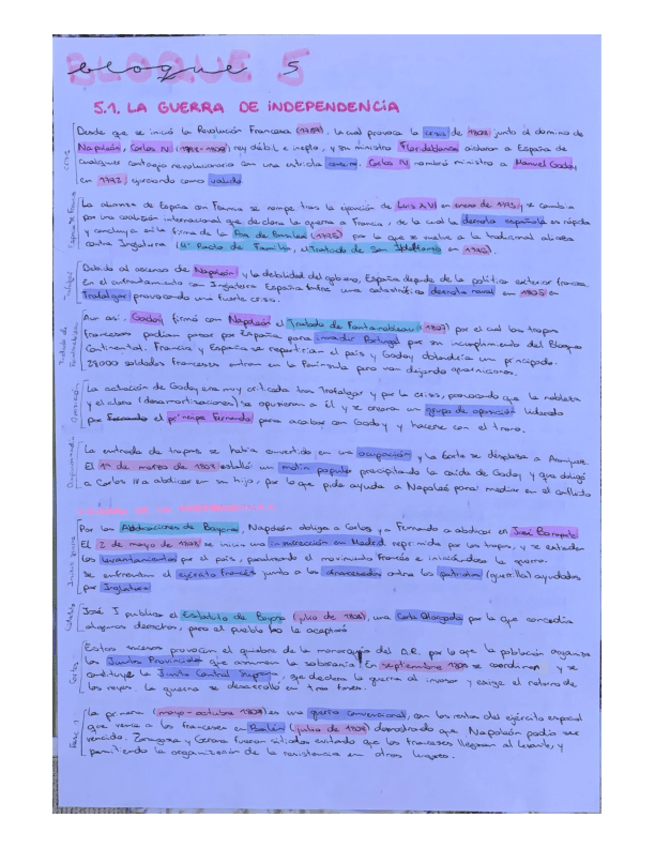 bloque 5
5.1. LA GUERRA DE INDEPENDENCIA
Desde que se inició la Revolución Francesa (1789), la cual provoca la crisis de 1808 junto al dominio de
Napoleón, Carlos IV (1788-1808) rey débil e inepto, y su ministro Floridablanca aislaron a España de
cualquier contagio revolucionario con una estricta censura. Carlos IV nombró ministro a Manuel Godoy
en 1792, ejerciendo como valido.
La alianza de España con Francia se rompe tras la ejecución de Luis XVI en enero de 1793, y se cambia
por una coalición internacional que declara la guerra a Francia, de la cual la derrota española es rápida
y concluye en la firma de la Paz de Basilea (1795) por la que se vuelve a la tradicional alianza
contra Inglaterra (4º Pacto de Familia, el Tratado de San Ildefonso en 1796).
Trafalgar
Debido al ascenso de Napoleón y la debilidad del gobierno, España depende de la política exterior francesa.
En el enfrentamiento con Inglaterra España sufre una catastrófica derrota naval en 1805 en
Trafalgar provocando una fuerte crisis.
Tratado de
Fontainebleau
Aun así, Godoy firmó con Napoleón el Tratado de Fontainebleau (1807) por el cual las tropas
francesas podían pasar por España para invadir Portugal por su incumplimiento del Bloqueo
Continental. Francia y España se repartirían el país y Godoy obtendría un principado.
28000 soldados franceses entran en la Península pero van dejando guarniciones.
Oposición
La actuación de Godoy era muy criticada tras Trafalgar y por la crisis, provocando que la nobleza
y el clero (desamortizaciones) se opusieran a él y se creara un grupo de oposición liderado
por el príncipe Fernando para acabar con Godoy y hacerse con el trono.
La entrada de tropas se había convertido en una ocupación y la corte se desplaza a Aranjuez.
El de marzo de 1808 estalló un motín popular precipitando la caída de Godoy y que obligó
a Carlos IV a abdicar en su hijo, por lo que pide ayuda a Napoleón para mediar en el conflicto
Inicio guerra
Por las Abdicaciones de Bayona, Napoleón obliga a Carlos y a Fernando a abdicar en José Bonaparte
El 2 de mayo de 1808 se inicia una insurrección en Madrid reprimida por las tropas, y se extienden
los levantamientos por el país, paralizando el movimiento francés e iniciándose la guerra.
Se enfrentan el ejército francés junto a los afrancesados contra los patriotas (guerrilla) ayudados
por Inglaterra
José I publica el Estatuto de Bayona (julio de 1808), una Carta Otorgada por la que concedía
algunos derechos, pero el pueblo no le aceptará
Estos sucesos provocan el quiebre de la monarquía del A.R. por lo que la población organiza
las Juntas Provinciales que asumen la soberanía. En septiembre 1808 se coordinan y se
constituye la Junta Central Suprema, que declara la guerra al invasor y exige el retorno de
los reyes. La guerra se desarrolló en tres fases.
Fase 1
La primera (mayo-octubre 1808) es una guerra convencional, con los restos del ejército español
que vence a los franceses en Bailén (julio de 1808) demostrando que Napoleón podía ser
vencido. Zaragoza y Gerona fueron sitiadas evitando que los franceses llegaran al Levante, y
permitiendo la organización de la resistencia en otros lugares.